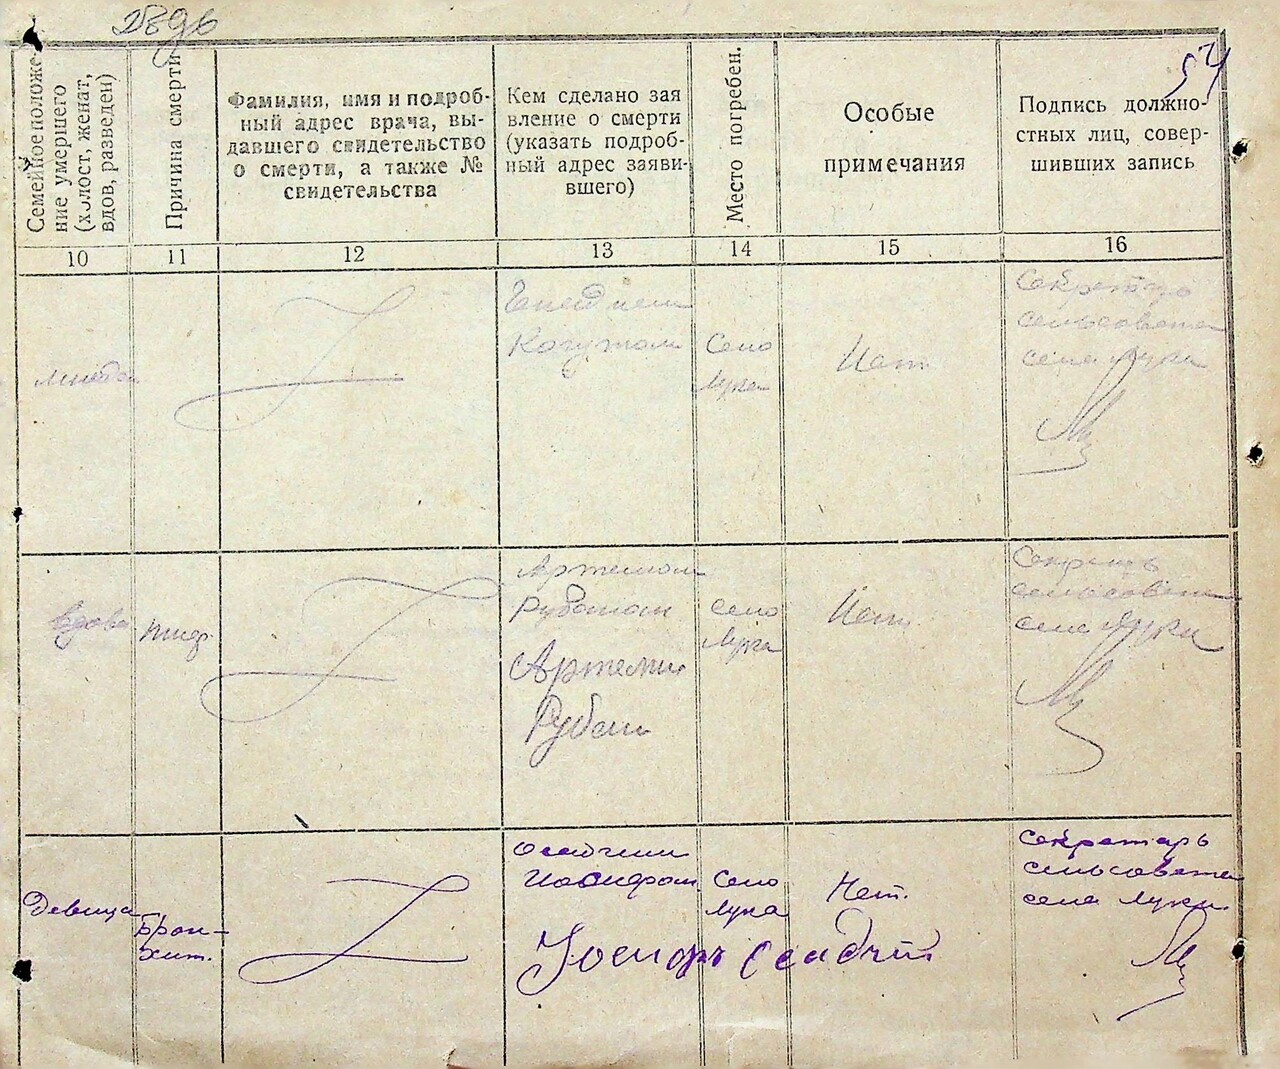 54
Семейное положе-
ние умершего
(холост, женат,
вдов, разведен)
Причина смерти
Фамилия, имя и подроб-
ный адрес врача, вы-
давшего свидетельство
о смерти, а также №
свидетельства
Кем сделано зая
вление о смерти
(указать подроб-
ный адрес заяви-
вшего)
Место погребен.
Особые
примечания
Подпись должно-
стных лиц, совер-
шивших запись
10
11
12
13
14
15
16
Когутом
Село
Лука
Нет.
Секретарь
сельсовета
села Луки
вдова
Артемом
Рубаном
Артемий
Рубан
село
Лука
Нет.
Секретарь
сельсовета
села Луки
Девица
Брон-
хит.
Осадчим
Иосифом
Село
Лука
Нет.
Иосифъ Осадчий
Секретарь
сельсовета
села Луки